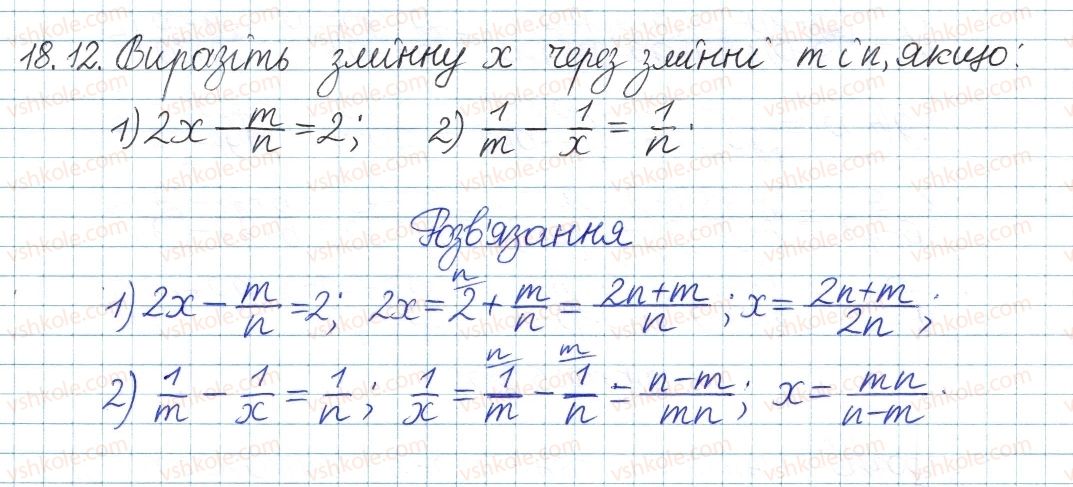 18.12. Виразіть змінну x через змінні m і n, якщо:
1) 2x − m/n = 2; 2) 1/m − 1/x = 1/n.
Розв'язання
1) 2x − m/n = 2; 2x = 2 (n) + m/n = (2n+m)/n; x = (2n+m)/(2n);
2) 1/m − 1/x = 1/n; 1/x = 1/m (n) − 1/n (m) = (n−m)/(mn); x = mn/(n−m).
vshkole.com